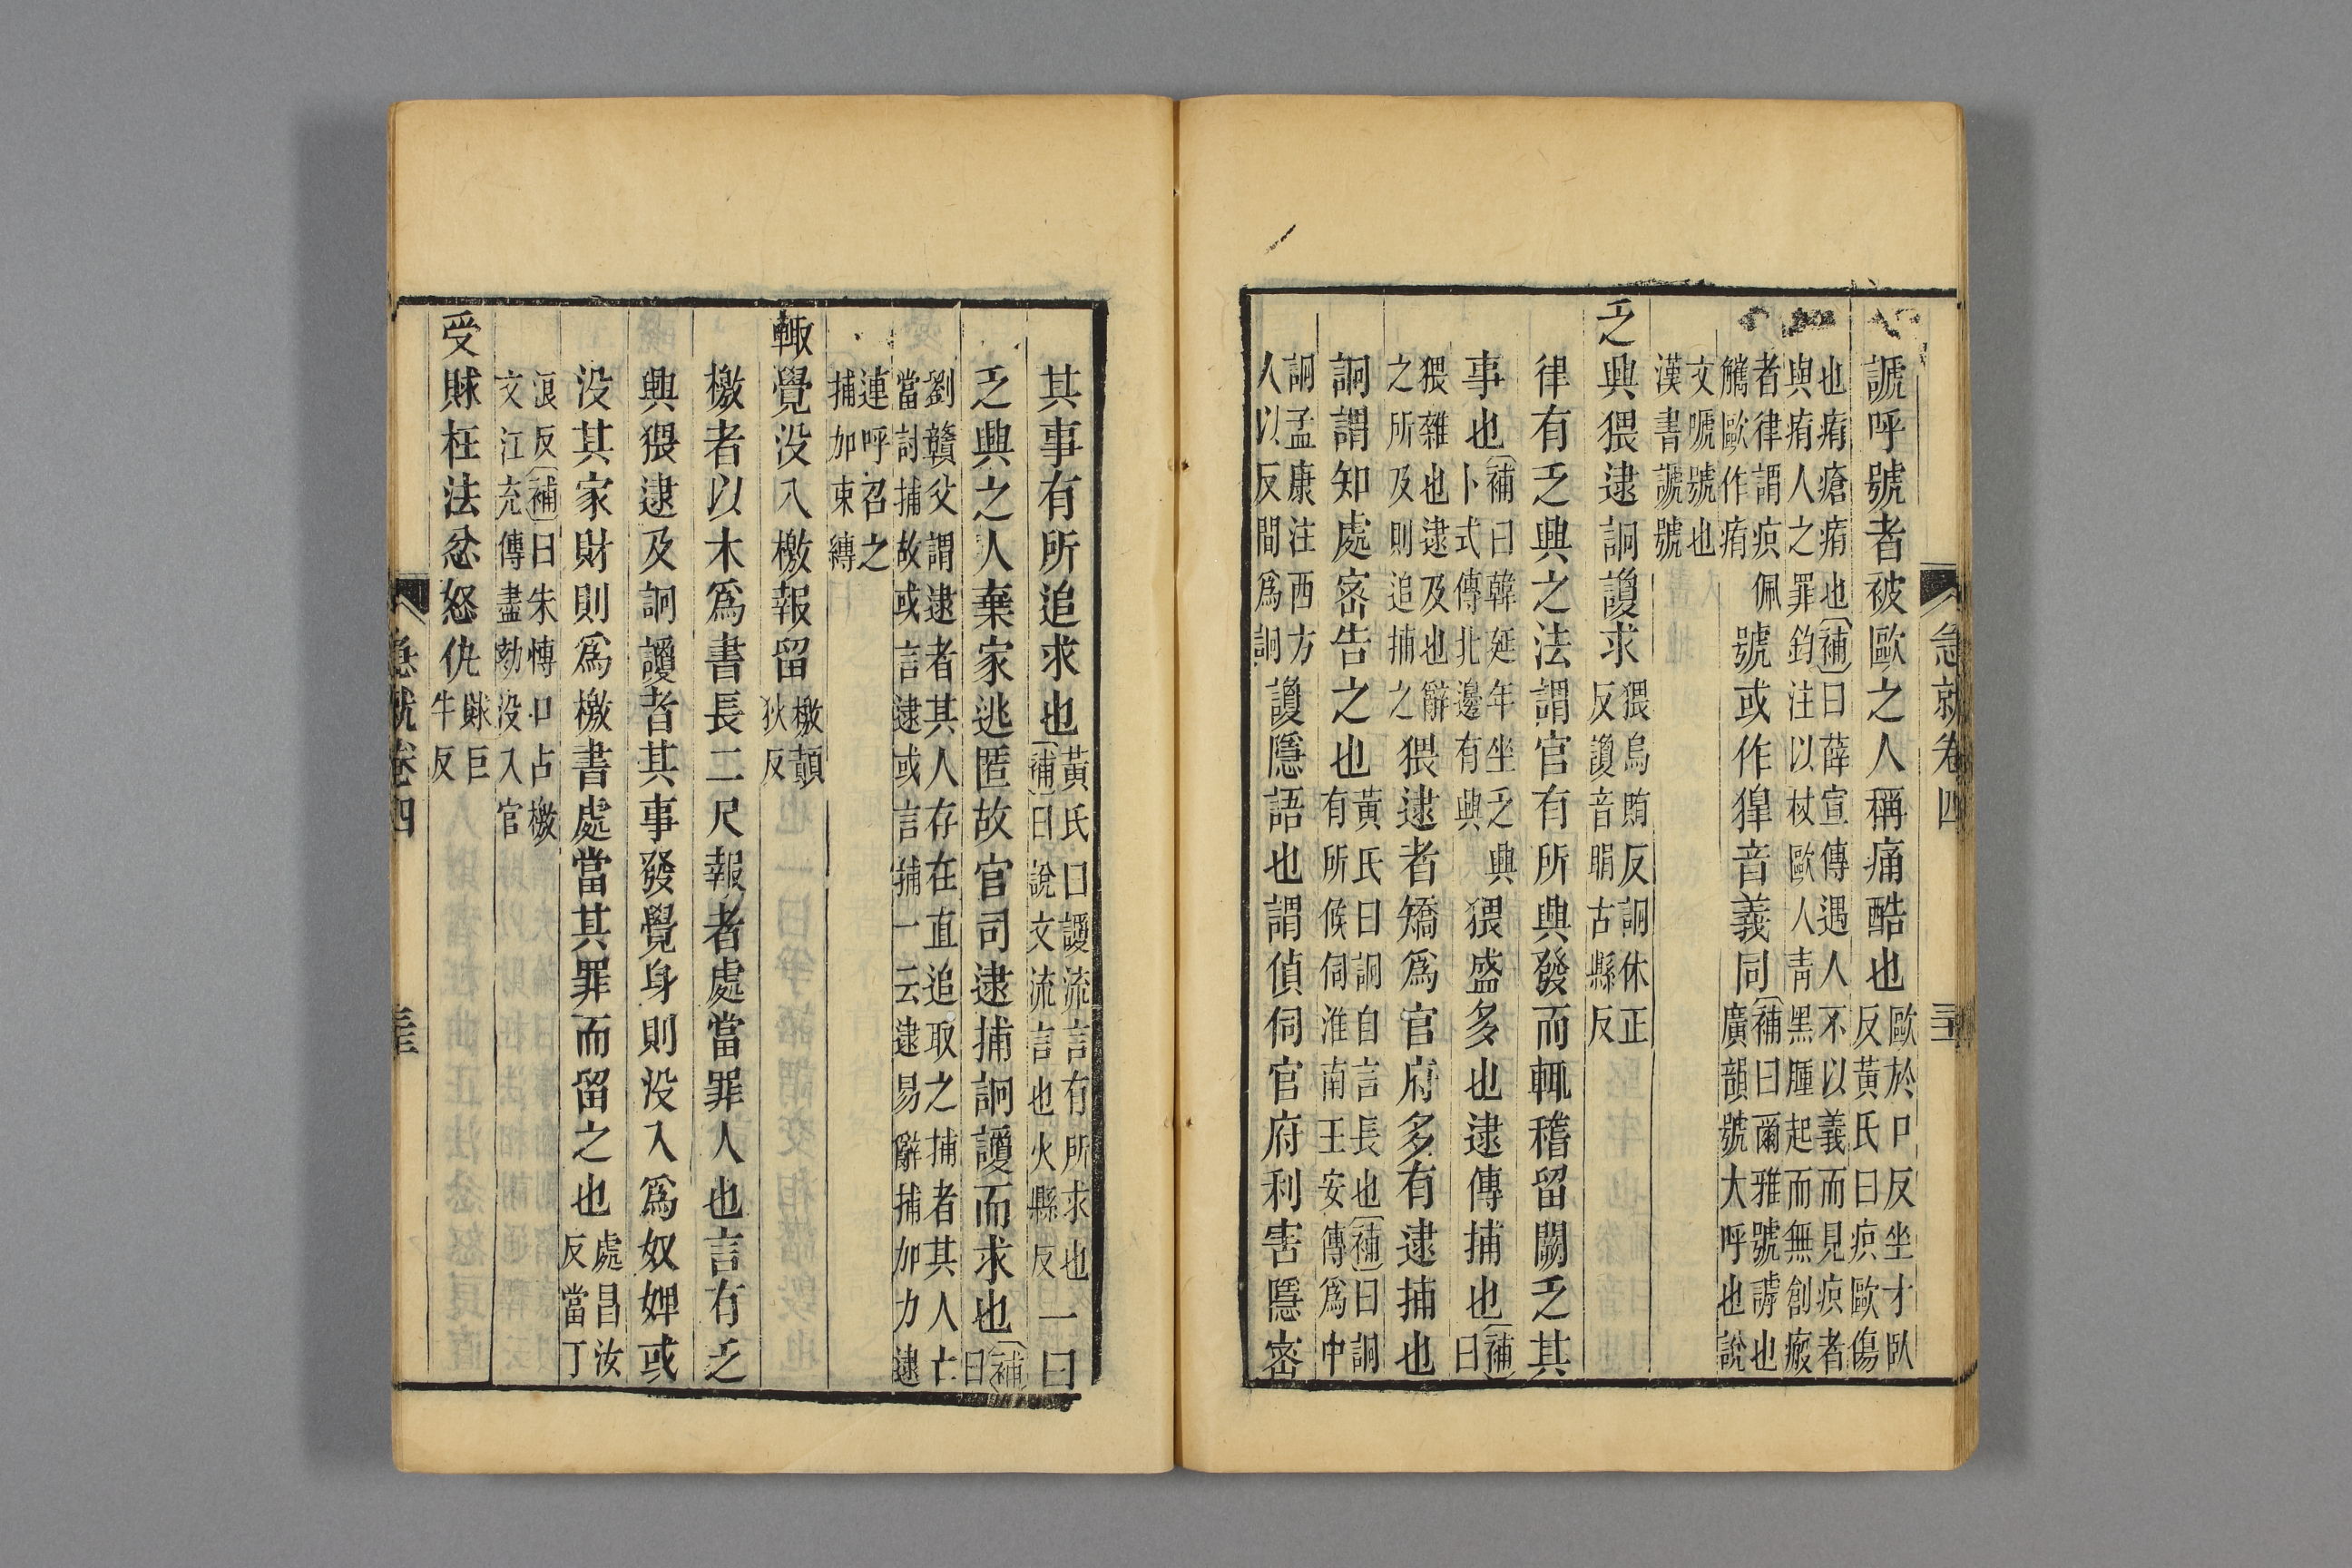 急就卷四
諕呼號者被歐之人稱痛酷也
歐於口反坐才臥
反黃氏曰疻歐傷
也痏瘡痏也補曰薛宣傳遇人不以義而見疻者
與痏人之罪鈞注以杖歐人靑黑腫起而無創瘢
者律謂疻佩
觿歐作痏
號或作獆音義同
補曰爾雅號謼也
廣韻號大呼也說
文嗁號也
漢書諕號
乏興猥逮詗讂求
猥烏賄反詗休正
反讂音睊古縣反
律有乏興之法謂官有所興發而輒稽留闕乏其
事也
補曰韓延年坐乏興
卜式傳北邊有興
猥盛多也逮傳捕也
補
曰
猥雜也逮及也辭
之所及則追捕之
猥逮者矯爲官府多有逮捕也
詗謂知處密告之也
黃氏曰詗自言長也補曰詗
有所候伺淮南王安傳爲中
詗孟康注西方
人以反間爲詗
讂隱語也謂偵伺官府利害隱密
其事有所追求也
黃氏曰讂流言有所求也
補曰說文流言也火縣反
一曰
乏興之人棄家逃匿故官司逮捕詗讂而求也
補
曰
劉贛父謂逮者其人存在直追取之捕者其人亡
當討捕故或言逮或言捕一云逮易辭捕加力逮
連呼召之
捕加束縛
輙覺没入檄報留
檄顛
狄反
檄者以木爲書長二尺報者處當罪人也言有乏
興猥逮及詗讂者其事發覺身則没入爲奴婢或
没其家財則爲檄書處當其罪而留之也
處昌汝
反當丁
浪反補曰朱慱口占檄
文江充傳盡劾没入官
受賕枉法忿怒仇
賕巨
牛反
急就卷四